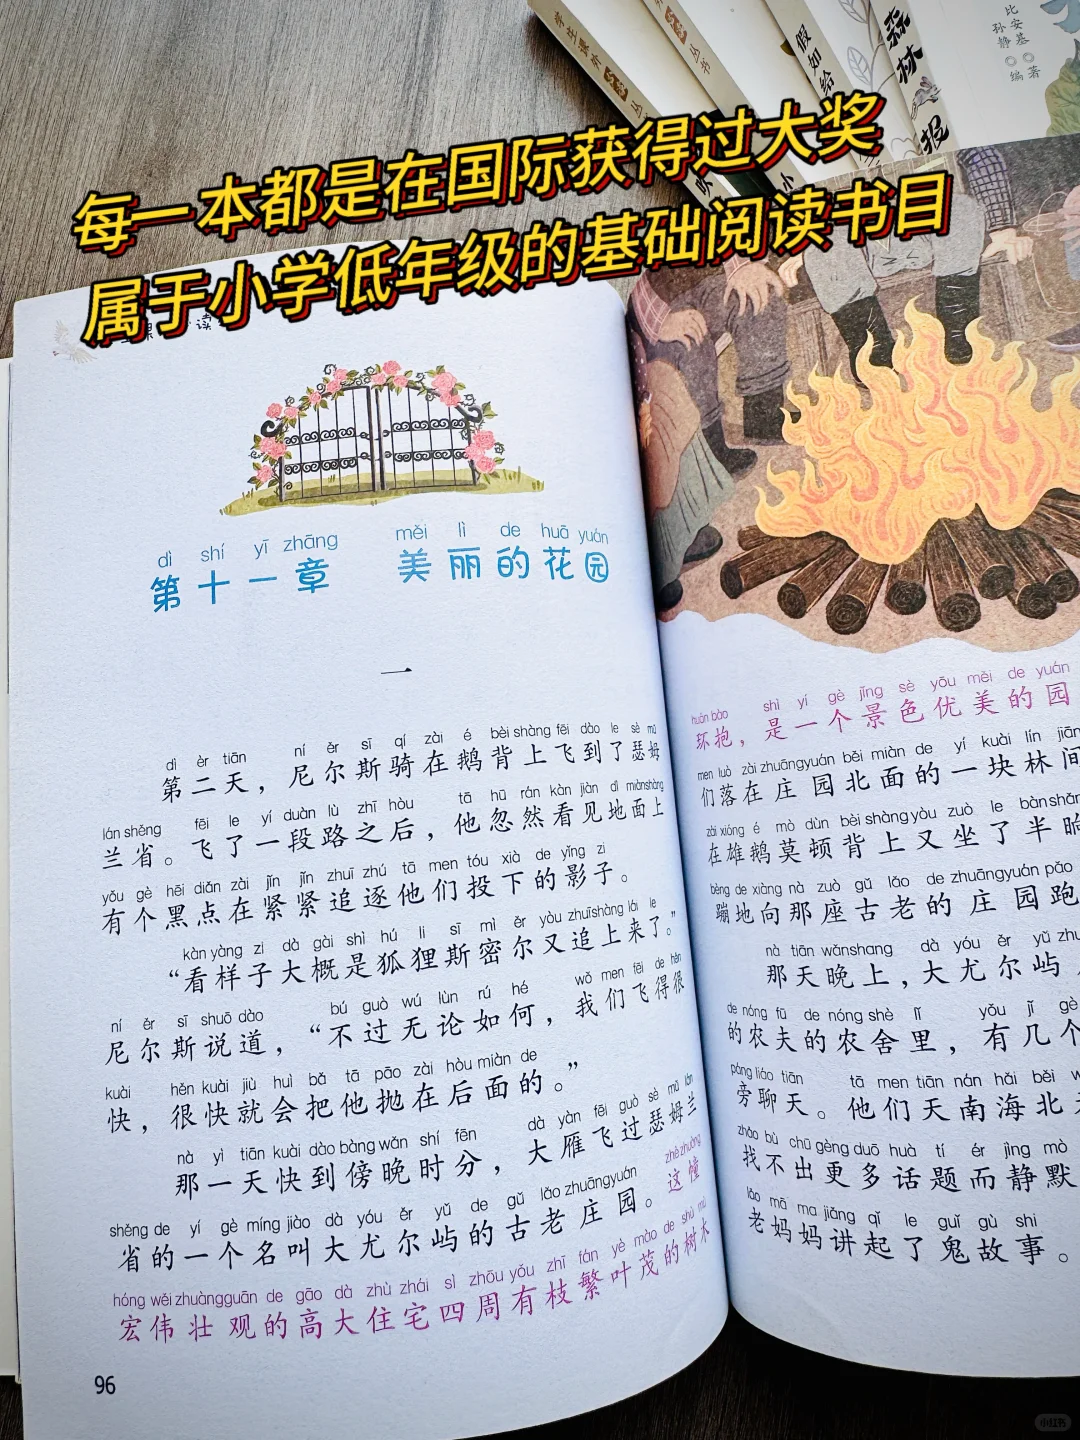 学生课外阅读丛书
丛书
假如给
森林报
比安基◎
孙静◎编著
吹
小
每一本都是在国际获得过大奖
属于小学低年级的基础阅读书目
课
读
dì shí yī zhāng měi lì de huā yuán
第十一章 美丽的花园
一
dì èr tiān ní ěr sī qí zài é bèi shàng fēi dào le sè mǔ
第二天，尼尔斯骑在鹅背上飞到了瑟姆
lán shěng fēi le yí duàn lù zhī hòu tā hū rán kàn jiàn dì miàn shàng
兰省。飞了一段路之后，他忽然看见地面上
yǒu gè hēi diǎn zài jǐn jǐn zhuī zhú tā men tóu xià de yǐng zi
有个黑点在紧紧追逐他们投下的影子。
kàn yàng zi dà gài shì hú li sī mì ěr yòu zhuī shàng lái le
“看样子大概是狐狸斯密尔又追上来了。”
ní ěr sī shuō dào bú guò wú lùn rú hé wǒ men fēi de hěn
尼尔斯说道，“不过无论如何，我们飞得很
kuài hěn kuài jiù huì bǎ tā pāo zài hòu miàn de
快，很快就会把他抛在后面的。”
nà yì tiān kuài dào bàng wǎn shí fēn dà yàn fēi guò sè mǔ lán
那一天快到傍晚时分，大雁飞过瑟姆兰
shěng de yí gè míng jiào dà yóu ěr yǔ de gǔ lǎo zhuāng yuán zhè zhuàng
省的一个名叫大尤尔屿的古老庄园。这幢
hóng wěi zhuàng guān de gāo dà zhù zhái sì zhōu yǒu zhī fán yè mào de shù mù
宏伟壮观的高大住宅四周有枝繁叶茂的树木
96
huán bào shì yí gè jǐng sè yōu měi de yuán
环抱，是一个景色优美的园
men luò zài zhuāng yuán běi miàn de yí kuài lín jiān
们落在庄园北面的一块林间
zài xióng é mò dùn bèi shàng yòu zuò le bàn shǎng
在雄鹅莫顿背上又坐了半晌
bèng de xiàng nà zuò gǔ lǎo de zhuāng yuán pǎo
蹦地向那座古老的庄园跑
nà tiān wǎn shang dà yóu ěr yǔ zhu
那天晚上，大尤尔屿
de nóng fū de nóng shè lǐ yǒu jǐ gè
的农夫的农舍里，有几个
páng liáo tiān tā men tiān nán hǎi běi
旁聊天。他们天南海北
zhǎo bù chū gèng duō huà tí ér jìng mò
找不出更多话题而静默
lǎo mā ma jiǎng qǐ le guǐ gù shi
老妈妈讲起了鬼故事。
小红书